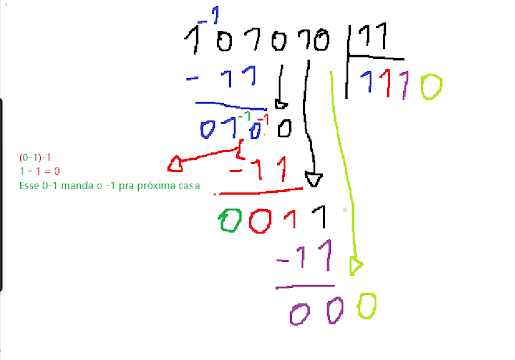 -1
101010 | 11
- 11 1110
-1 -1
0100
- 11
0011
-11
000
(0-1)-1
1 - 1 = 0
Esse 0-1 manda o -1 pra próxima casa